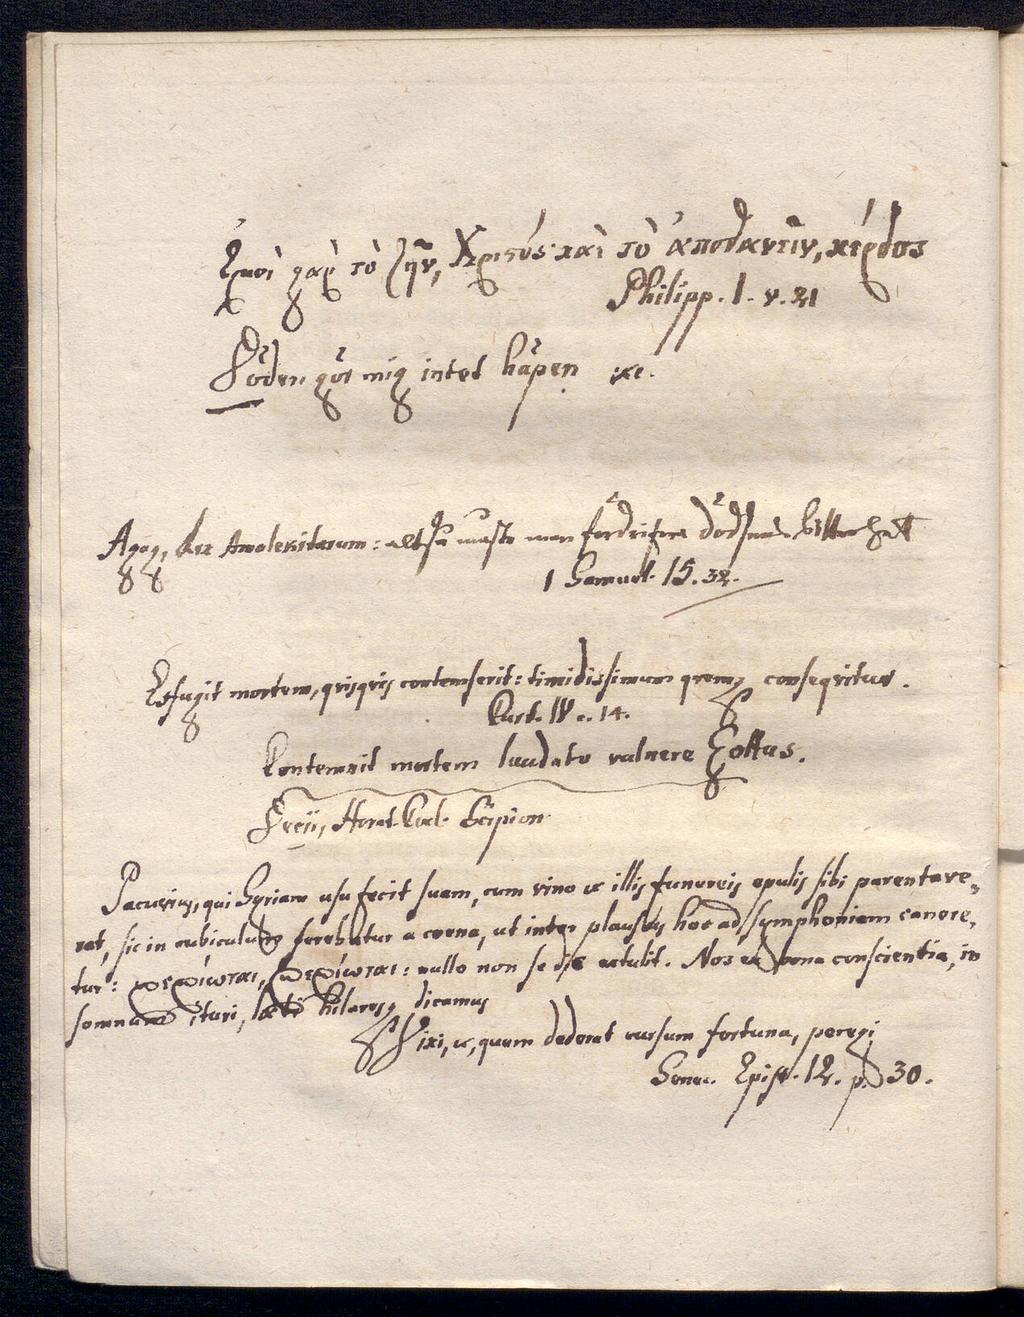 Ἐμοὶ γὰρ τὸ ζῆν, Χριστός· καὶ τὸ ἀποθανεῖν, κέρδος
Philipp. 1. v. 21
Döden gör mig intet häpen :/:
Agag, Rex Amalekitarum: altså måste man fördrifva dödsens bitterhet
1 Samuel. 15. 32.
Effugit mortem, qvisqvis contemserit: timidissimum qvemq; conseqvitur.
Curt. IV c. 14.
Contemnit mortem laudato vulnere Gothus.
Horat. Cocl. Scipion
Pacuvius, qui Syriam usu fecit suam, cum vino & illis funereis epulis sibi parentave-
rat, sic in cubiculum ferebatur a coena, ut inter plausus hoc ad symphoniam canere-
tur: βεβίωται, βεβίωται: nullo non se die extulit. Nos ex bona conscientia, in
somnum ituri, læti hilaresq; dicamus
Vixi, &, quem dederat cursum fortuna, peregi
Senec. Epist. 12. p. 30.